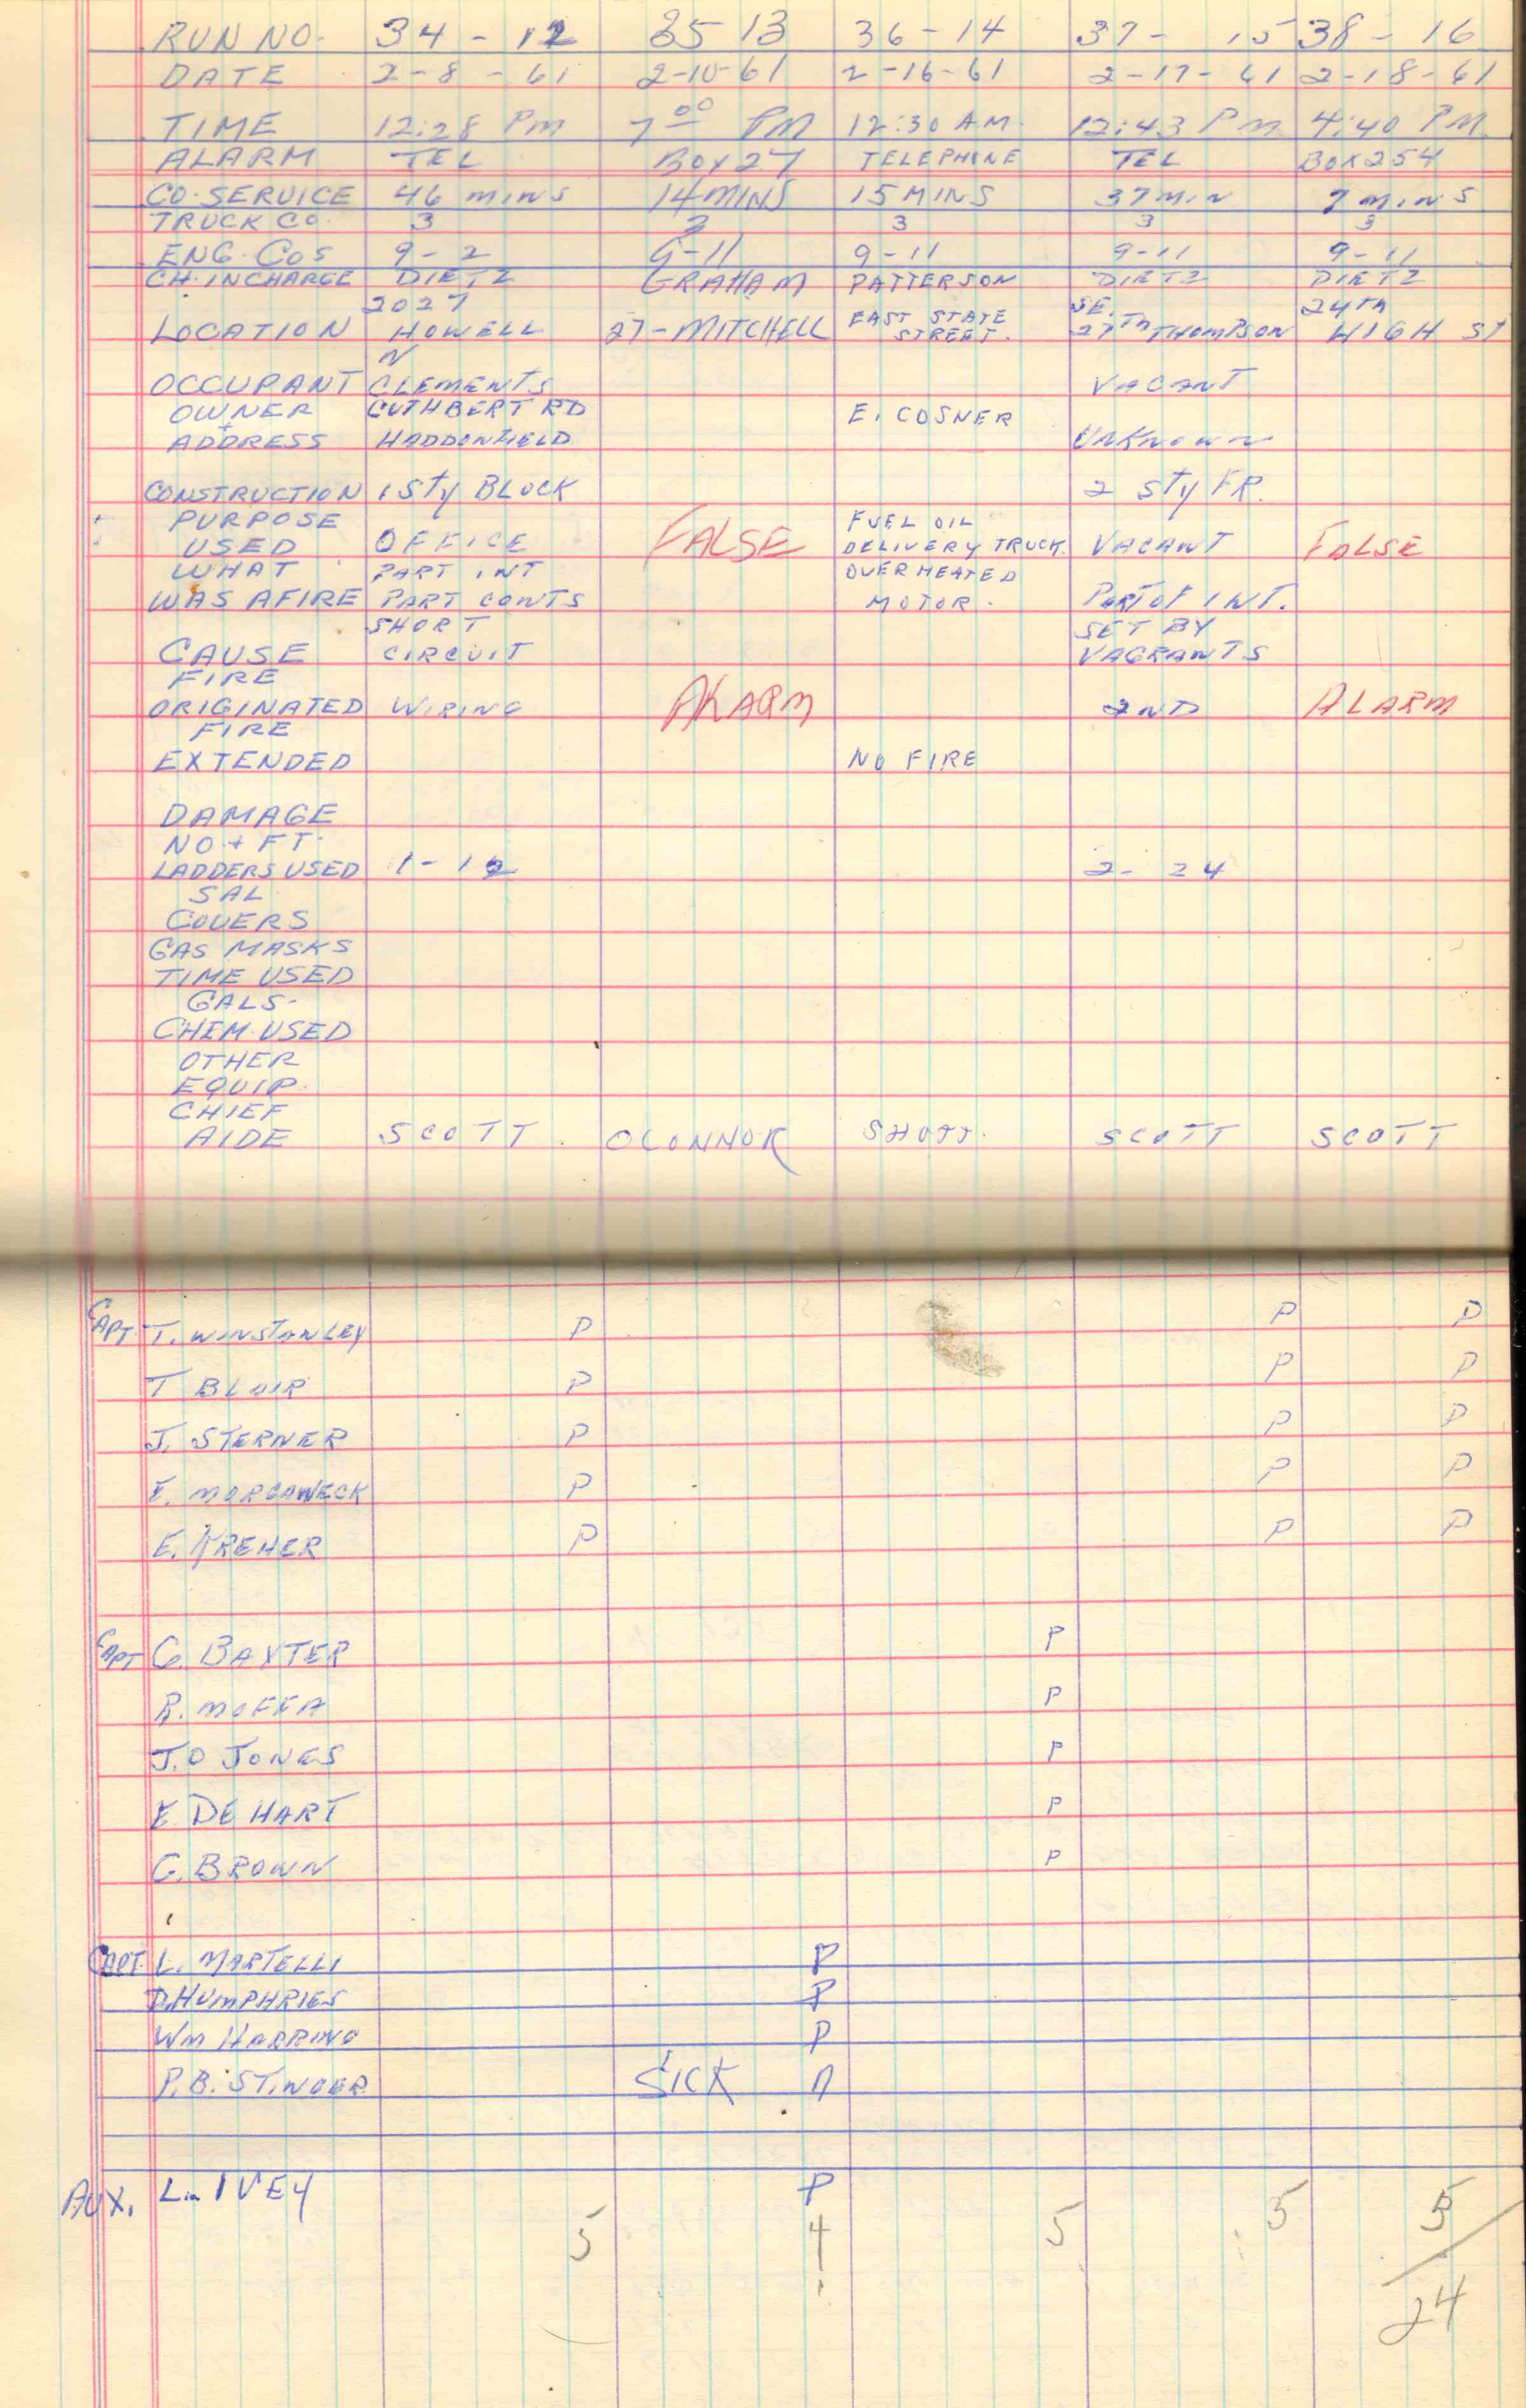 RUN NO. 34 - 12 35 13 36 - 14 37 - 15 38 - 16
DATE 2-8-61 2-10-61 2-16-61 2-17-61 2-18-61
TIME 12:28 PM 7 00 PM 12:30 AM. 12:43 PM 4:40 PM
ALARM TEL BOX 27 TELEPHINE TEL BOX 254
CO. SERVICE 46 MINS 14 MINS 15 MINS 37 MIN 7 MINS
TRUCK CO. 3 3 3 3 3
ENG. COS 9-2 9-11 9-11 9-11 9-11
CH. INCHARGE DIETZ GRAHAM PATTERSON DIETZ DIETZ
2027 EAST STATE SE. 24TH
LOCATION HOWELL 27-MITCHELL STREET. 27TH THOMPSON HIGH ST
N
OCCUPANT CLEMENTS VACANT
OWNER CUTHBERT RD E. COSNER
+
ADDRESS HADDONFIELD UNKNOWN
CONSTRUCTION 1 STY BLOCK 2 STY FR.
PURPOSE FUEL OIL
USED OFFICE FALSE DELIVERY TRUCK. VACANT FALSE
WHAT PART INT OVERHEATED
WAS AFIRE PART CONTS MOTOR. PART OF INT.
SHORT SET BY
CAUSE CIRCUIT VAGRANTS
FIRE
ORIGINATED WIRING ALARM 2ND ALARM
FIRE
EXTENDED NO FIRE
DAMAGE
NO + FT.
LADDERS USED 1-12 2-24
SAL
COVERS
GAS MASKS
TIME USED
GALS-
CHEM. USED
OTHER
EQUIP.
CHIEF
AIDE SCOTT. OCONNOR SCOTT SCOTT
CAPT. T. WINSTANLEY P P P
T BLAIR P P P
J. STERNER P P P
E. MORGAWECK P P P
E. KREHER P P P
CAPT G. BAXTER P
R. MOFFA P
J.O JONES P
E DE HART P
G. BROWN P
CAPT. L. MARTELLI P
D. HUMPHRIES P
WM HARRING P
P.B. STINGER SICK A
AUX. L. IVEY P
5 4 5 5 5
24